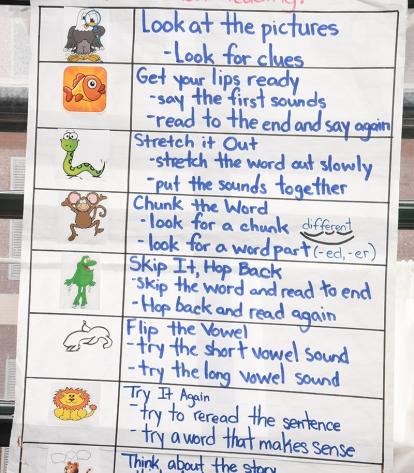 Look at the pictures
- Look for clues
Get your lips ready
- say the first sounds
- read to the end and say again
Stretch it Out
- stretch the word out slowly
- put the sounds together
Chunk the Word
- look for a chunk different
- look for a word part (-ed, -er)
Skip It, Hop Back
- Skip the word and read to end
- Hop back and read again
Flip the Vowel
- try the short vowel sound
- try the long vowel sound
Try It Again
- try to reread the sentence
- try a word that makes sense
Think about the story